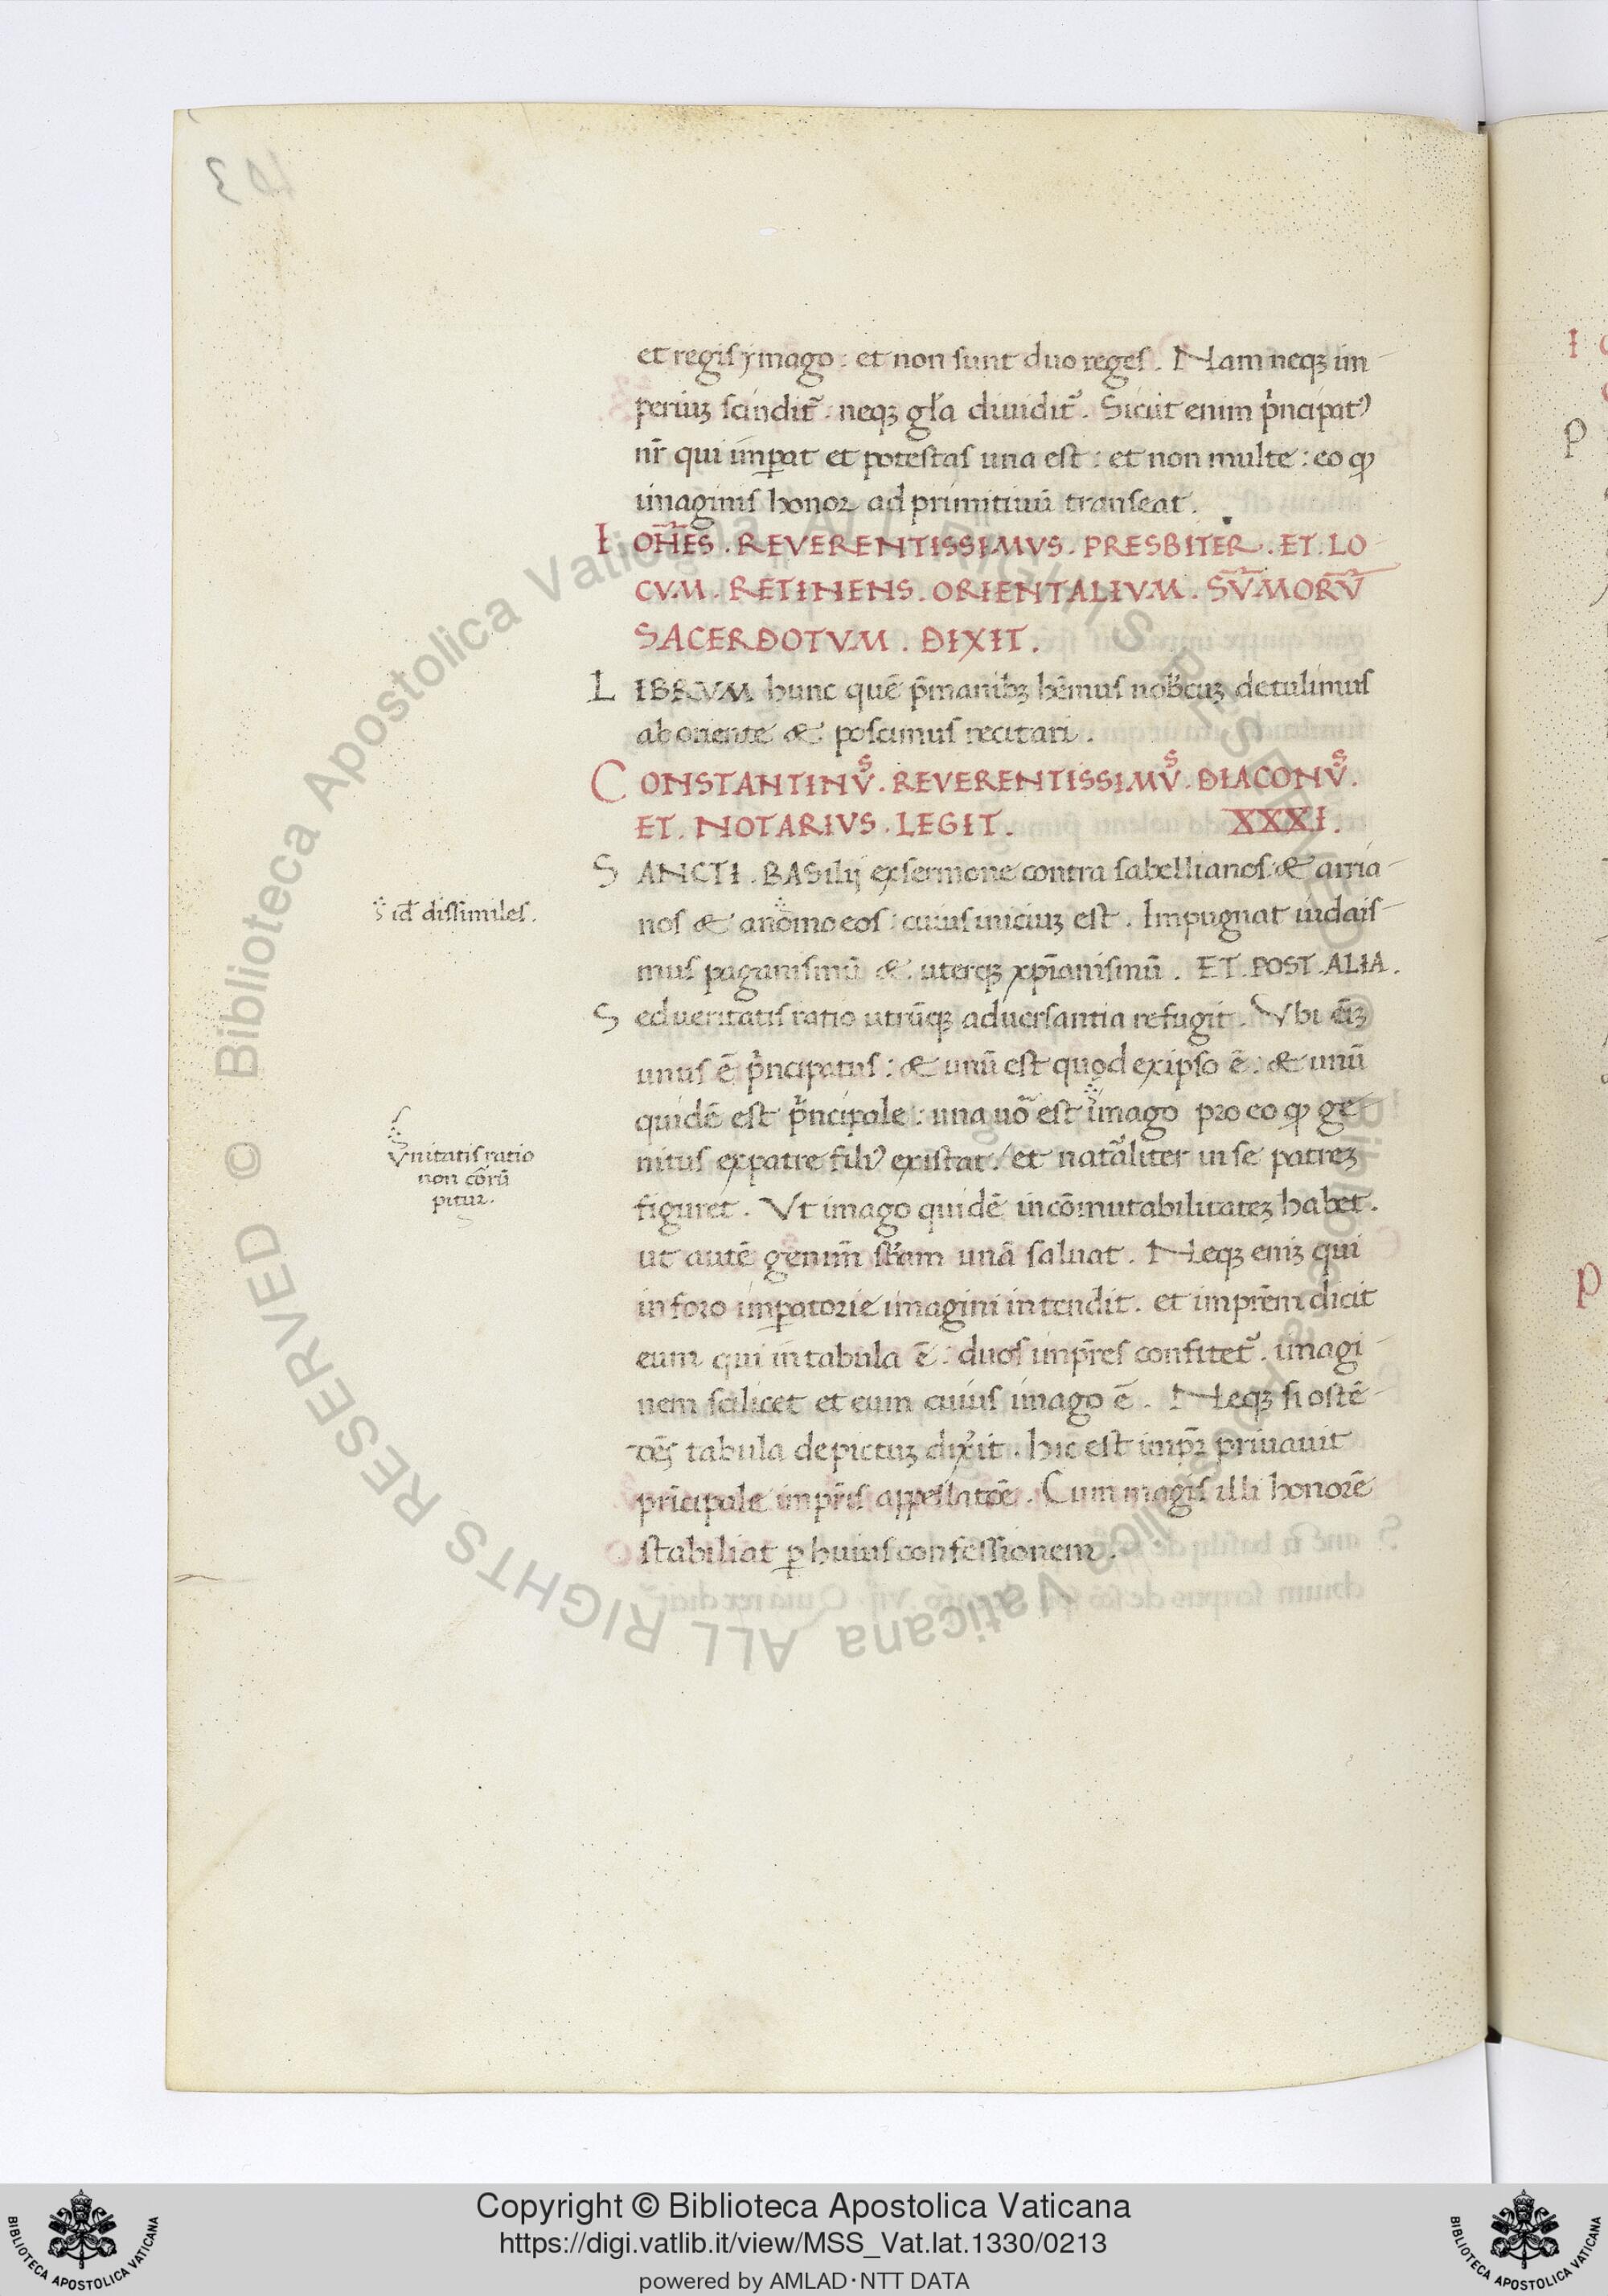 et regiſ ymago : et non ſunt duo regeſ . Nam neqꝫ im
periuꝫ ſcindit᷑ . neqꝫ gl̃a diuidit᷑ . Sicut enim p̾ncipatꝰ
nr̃ qui imꝑat et poteſtaſ una eſt : et non multe : eo ꝙ
imaginiſ honoꝛ ad primitiuũ tranſeat .
I OH̃ES . REVERENTISSIMVS . PRESBITER . ET . LO
CVM . RETINENS . ORIENTALIVM . SṼMORṼ
SACERDOTVM . DIXIT .
L IBRVM hunc quẽ p̃manibꝫ hẽmuſ nobcuꝫ detulimuſ
ab oriente & poſcimuſ recitari .
C ONSTANTINVˢ . REVERENTISSIMVˢ . DIACONVˢ .
ET . NOTARIVS . LEGIT . XXXI .
S ANCTI . BASilij ex ſermone contra ſabellianoſ & arria
id̃ diſſimileſ .
noſ & anomoeoſ : cuiuſ iniciuꝫ eſt . Impugnat iudaiſ
muſ paganiſmũ & uterqꝫ xp̃ianiſmũ . ET . POST . ALIA .
S ed ueritatiſ ratio utrũqꝫ aduerſantia refugit . Vbi eĩꝫ
unuſ ẽ p̾ncipatuſ : & unũ eſt quod ex ipſo ẽ : & unũ
quidẽ eſt p̾ncipale : una uõ eſt imago pro eo ꝙ ge
Vnitatiſ ratio
non cõrũ
pitur .
nituſ ex patre filiꝰ exiſtat . et nat̾aliter in ſe patreꝫ
figuret . Vt imago quidẽ incõmutabilitateꝫ habet .
ut autẽ genim̃ ſb̃am unã ſaluat . Neqꝫ eniꝫ qui
in foro imꝑatorie imagini intendit . et impr̃em dicit
eum qui in tabula ẽ : duoſ impr̃eſ confitet᷑ . imagi
nem ſcilicet et eum cuiuſ imago ẽ . Neqꝫ ſi oſtẽ
dẽſ tabula depictuꝫ dixĩt . hic eſt impr̃ priuauit
prĩcipale impr̃iſ appellatõe . Cum magiſ illi honorẽ
ſtabiliat ꝑ huiuſ confeſſionem .
Copyright © Biblioteca Apostolica Vaticana
https://digi.vatlib.it/view/MSS_Vat.lat.1330/0213
powered by AMLAD·NTT DATA
© Biblioteca Apostolica Vaticana ALL RIGHTS RESERVED
© Biblioteca Apostolica Vaticana ALL RIGHTS RESERVED
BIBLIOTECA APOSTOLICA VATICANA
BIBLIOTECA APOSTOLICA VATICANA